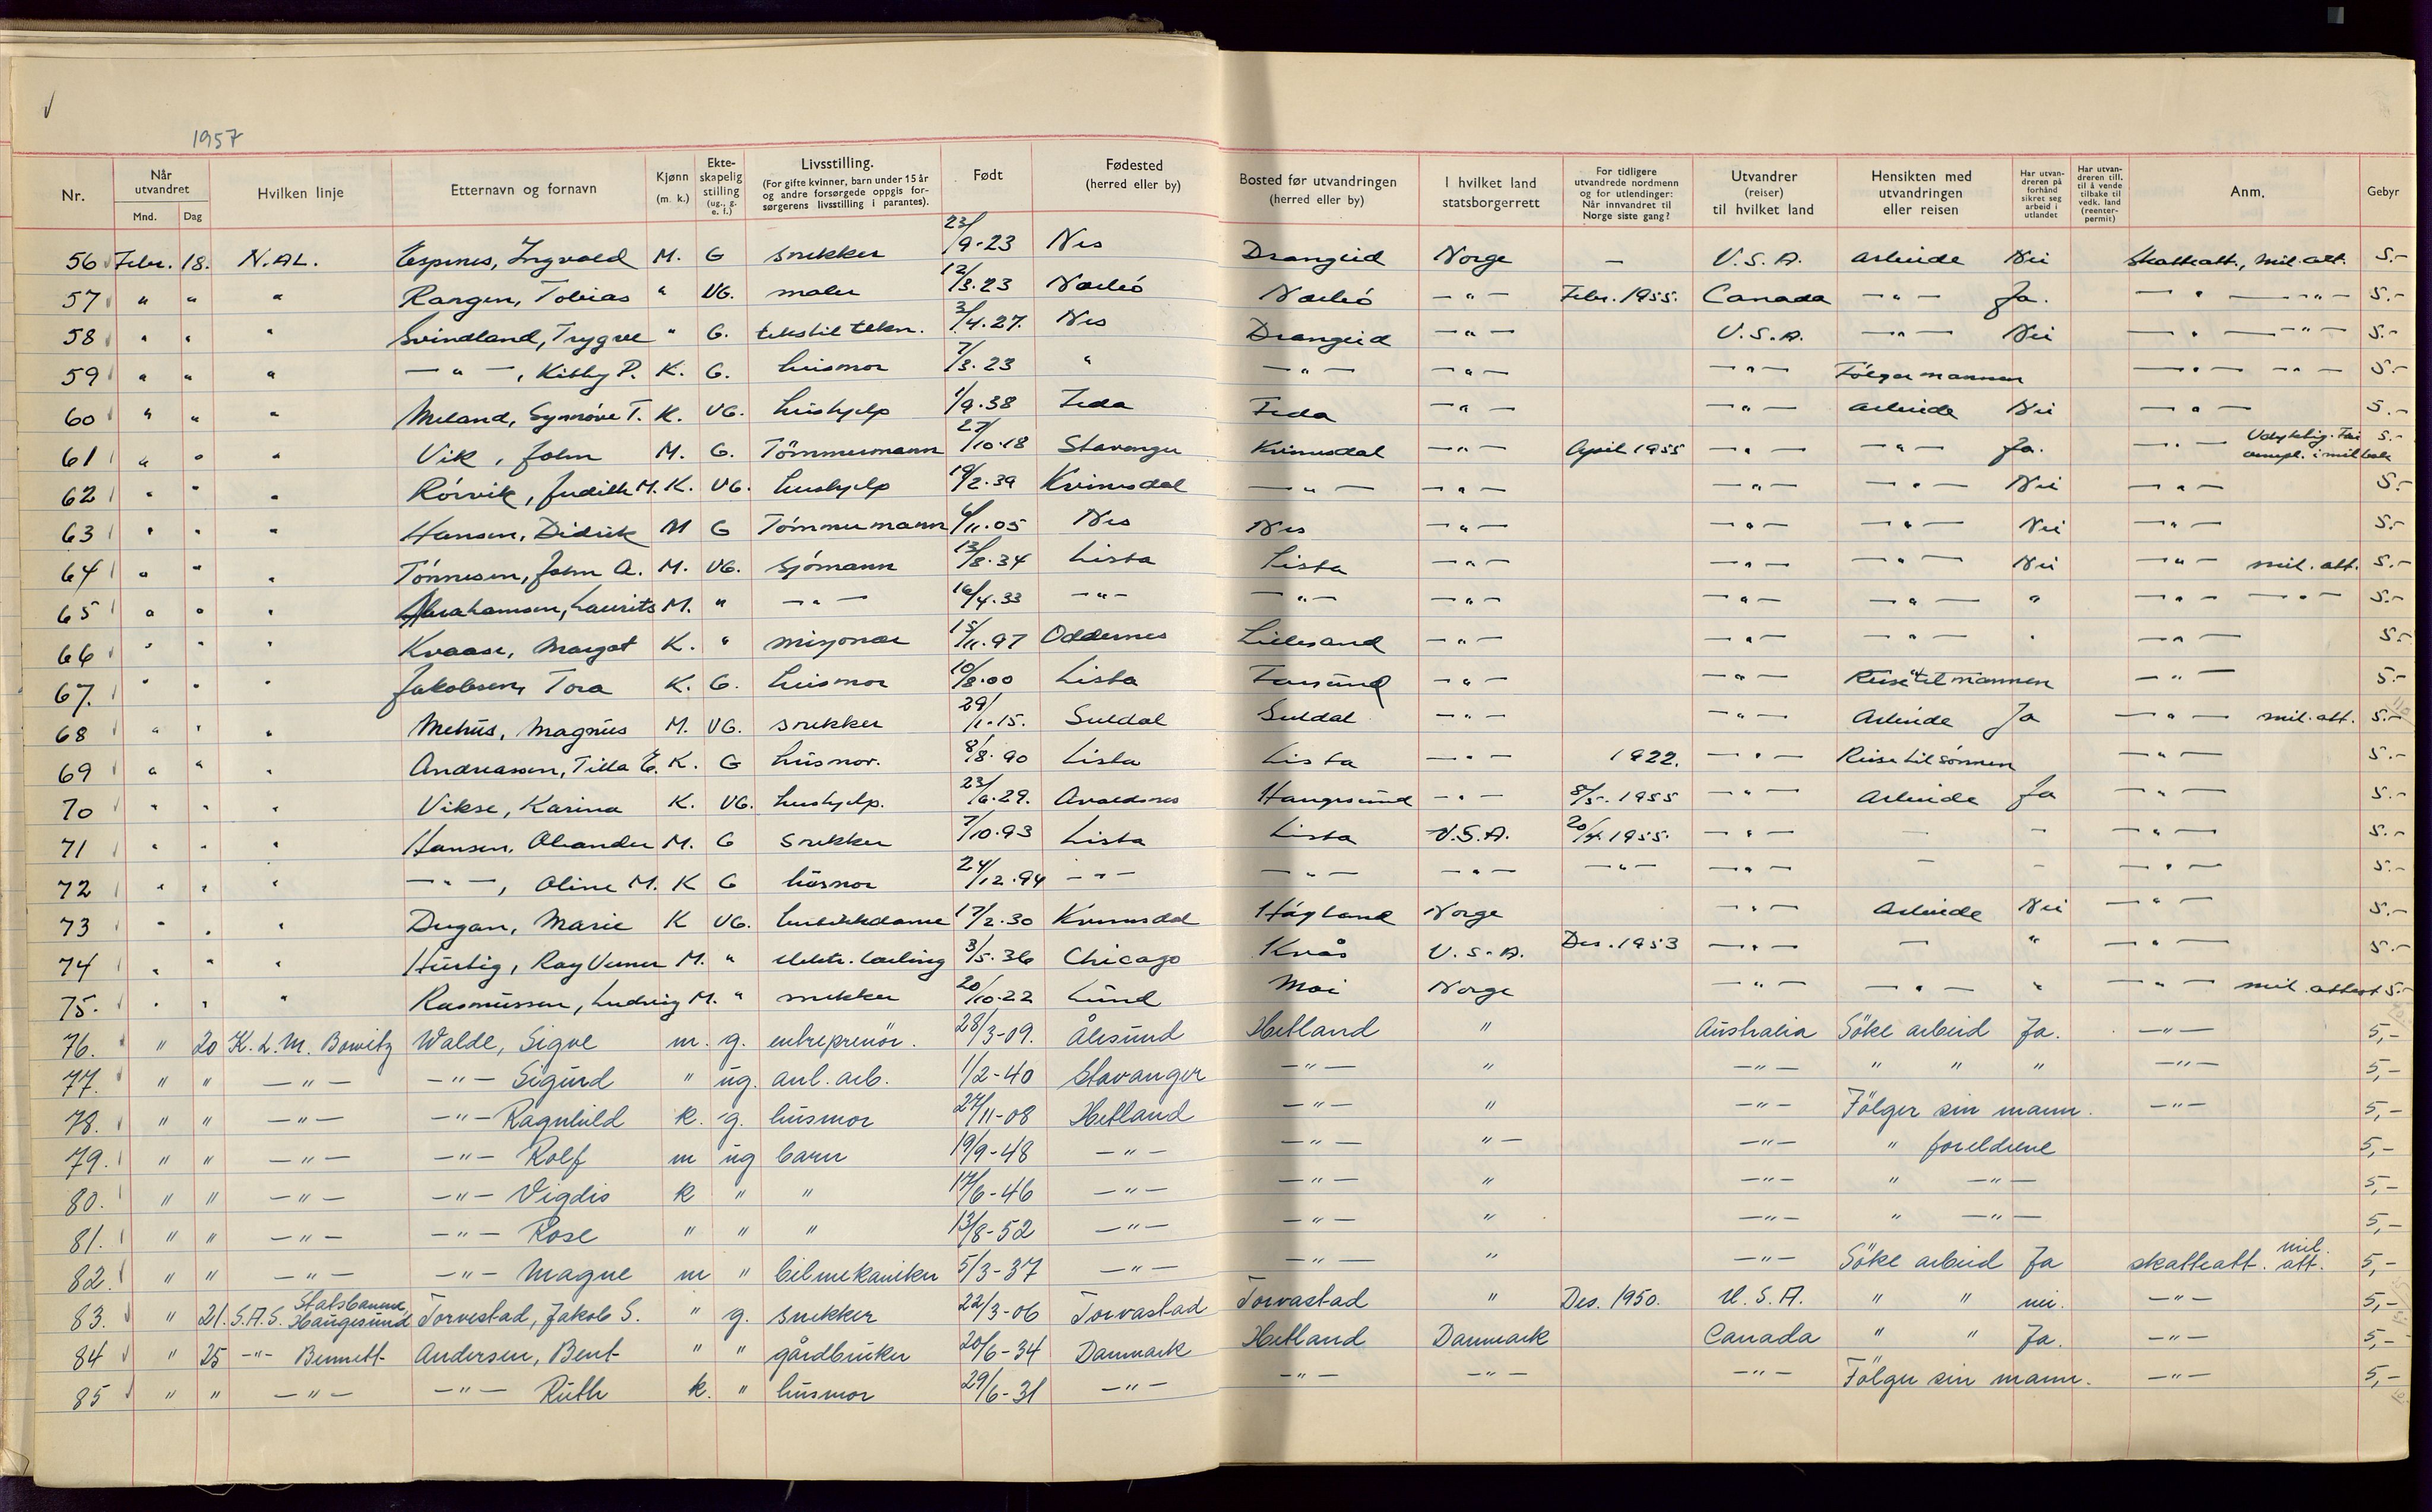 1957
Nr. Når utvandret Mnd. Dag Hvilken linje Etternavn og fornavn Kjønn (m. k.) Ekteskapelig stilling (ug., g. e. f.) Livsstilling. (For gifte kvinner, barn under 15 år og andre forsørgede oppgis forsørgerens livsstilling i parantes). Født Fødested (herred eller by) Bosted før utvandringen (herred eller by) I hvilket land statsborgerrett For tidligere utvandrede nordmenn og for utlendinger: Når innvandret til Norge siste gang? Utvandrer (reiser) til hvilket land Hensikten med utvandringen eller reisen Har utvandreren på forhånd sikret seg arbeid i utlandet Har utvandreren till. til å vende tilbake til vedk. land (reenterpermit) Anm. Gebyr
56 Febr. 18. N.AL. Espenes, Ingvald M. G snekker 23/9-23 Nes Drangeid Norge — U.S.A. arbeide Nei Skatteatt., mil. att. 5.-
57 " " " Rangen, Tobias " UG. maler 12/3.23 Nærbø Nærbø —"— Febr. 1955. Canada —"— Ja. —"— —"— 5.-
58 " " " Svindland, Trygve " G. tekstil tekn. 3/4.27. Nes Drangeid —"— U.S.A. —"— Nei —"— —"— 5.-
59 " " " —"—, Kitty P. K. G. husmor 7/3.23 " —"— —"— —"— Følger mannen —"— —"— 5.-
60 " " " Meland, Synnøve T. K. UG. hushjelp 1/9.38 Feda Feda —"— —"— arbeide Nei —"— 5.-
61 " " " Vik, John M. G. Tømmermann 27/10.18 Stavanger Kvinesdal —"— April 1955 —"— —"— Ja. —"— 5.-
62 " " " Rørvik, Judith M. K. UG. hushjelp 19/2.39 Kvinesdal —"— —"— —"— —"— Nei —"— 5.-
63 " " " Hansen, Didrik M G Tømmermann 6/11.05 Nes Nes —"— —"— —"— Nei —"— 5.-
64 " " " Tønnesen, John A. M. UG. sjømann 13/8.34 Lista Lista —"— —"— —"— Nei —"— mil. att. 5.-
65 " " " Abrahamsen, Laurits M. " —"— 16/4.33 —"— —"— —"— —"— —"— " —"— —"— 5.-
66 " " " Kvaase, Margot K. " misjonær 15/11.97 Oddernes Lillesand —"— —"— —"— " —"— 5.-
67. " " " Jakobsen, Tora K. G. husmor 10/8.00 Lista Farsund —"— —"— Reise til mannen —"— 5.-
68 " " " Mehus, Magnus M. UG. snekker 29/1-15. Suldal Suldal —"— —"— Arbeide Ja —"— mil. att. 5.-
69 " " " Andreassen, Tilla E. K. G husmor. 8/8.90 Lista Lista —"— 1922. —"— Reise til sønnen —"— 5.-
70 " " " Vikse, Karina K. UG. hushjelp. 23/6.29. Avaldsnes Haugesund —"— 8/5. 1955 —"— Arbeide Ja —"— 5.-
71 " " " Hansen, Oleander M. G snekker 7/10.93 Lista Lista U.S.A. 20/4. 1955. —"— — — —"— 5.-
72 " " " —"—, Oline M. K G husmor 24/12.94 —"— —"— —"— —"— —"— — — —"— 5.-
73 " " " Dugan, Marie K UG. butikkdame 17/2.30 Kvinesdal Høyland Norge —"— Arbeide Nei —"— 5.-
74 " " " Hurtig, Ray Verner M. " elektr. lærling 3/5.36 Chicago Kvås U.S.A. Des. 1953 —"— — " —"— 5.-
75. " " " Rasmussen, Ludvig M. " snekker 20/10.22 Lund Moi Norge —"— —"— " —"— mil. attest 5.-
76. " 20 K.L.M. Bowitz Walde, Sigve m. g. entreprenør. 28/3-09. Ålesund Hetland " Australia Søke arbeid Ja. —"— 5,-
77. " " —"— —"— Sigurd " ug. anl. arb. 1/2-40 Stavanger —"— " —"— " " " —"— 5,-
78. " " —"— —"— Ragnhild k. g. husmor 27/11-08 Hetland —"— " —"— Følger sin mann. —"— 5,-
79. " " —"— —"— Rolf m ug barn 19/9-48 —"— —"— "— —"— " foreldrene 5,-
80. " " —"— —"— Vigdis k " " 17/6-46 —"— —"— " —"— " —"— 5,-
81. " " —"— —"— Rose " " " 13/8-52 —"— —"— " —"— " —"— 5,-
82. " " —"— —"— Magne m " bilmekaniker 5/3-37 —"— —"— " —"— Søke arbeid Ja skatteatt. mil. att. 5,-
83. " 21. S.A.S. Statsbanene, Haugesund Torvestad, Jakob S. " g. snekker 22/3-06 Torvastad Torvastad " Des. 1950. U.S.A. " " nei. —"— 5,-
84 " 25 —"— Bennett Andersen, Bent " " gårdbruker 20/6-34 Danmark Hetland Danmark Canada " " Ja. —"— 5,-
85 " " —"— —"— Ruth k. " husmor 29/6-31 —"— —"— —"— —"— Følger sin mann. —"— 5,-